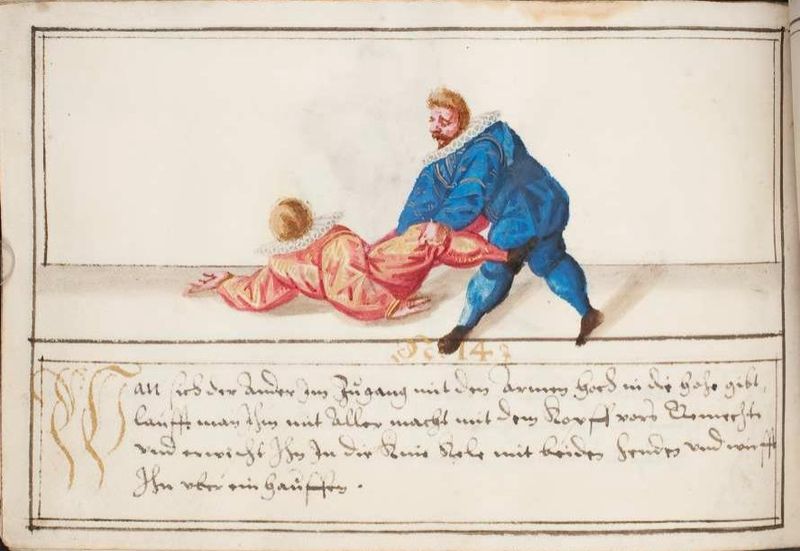 No 143
Wan sich der Ander Im Zugang mit den Armen hoch in die höhe gibt,
laufft man Ihm mit Aller macht mit dem Kopff vors Gemecht
und erwischt Ihn In die Knie Kele mit beiden henden und wirfft
Ihn uber ein hauffen.